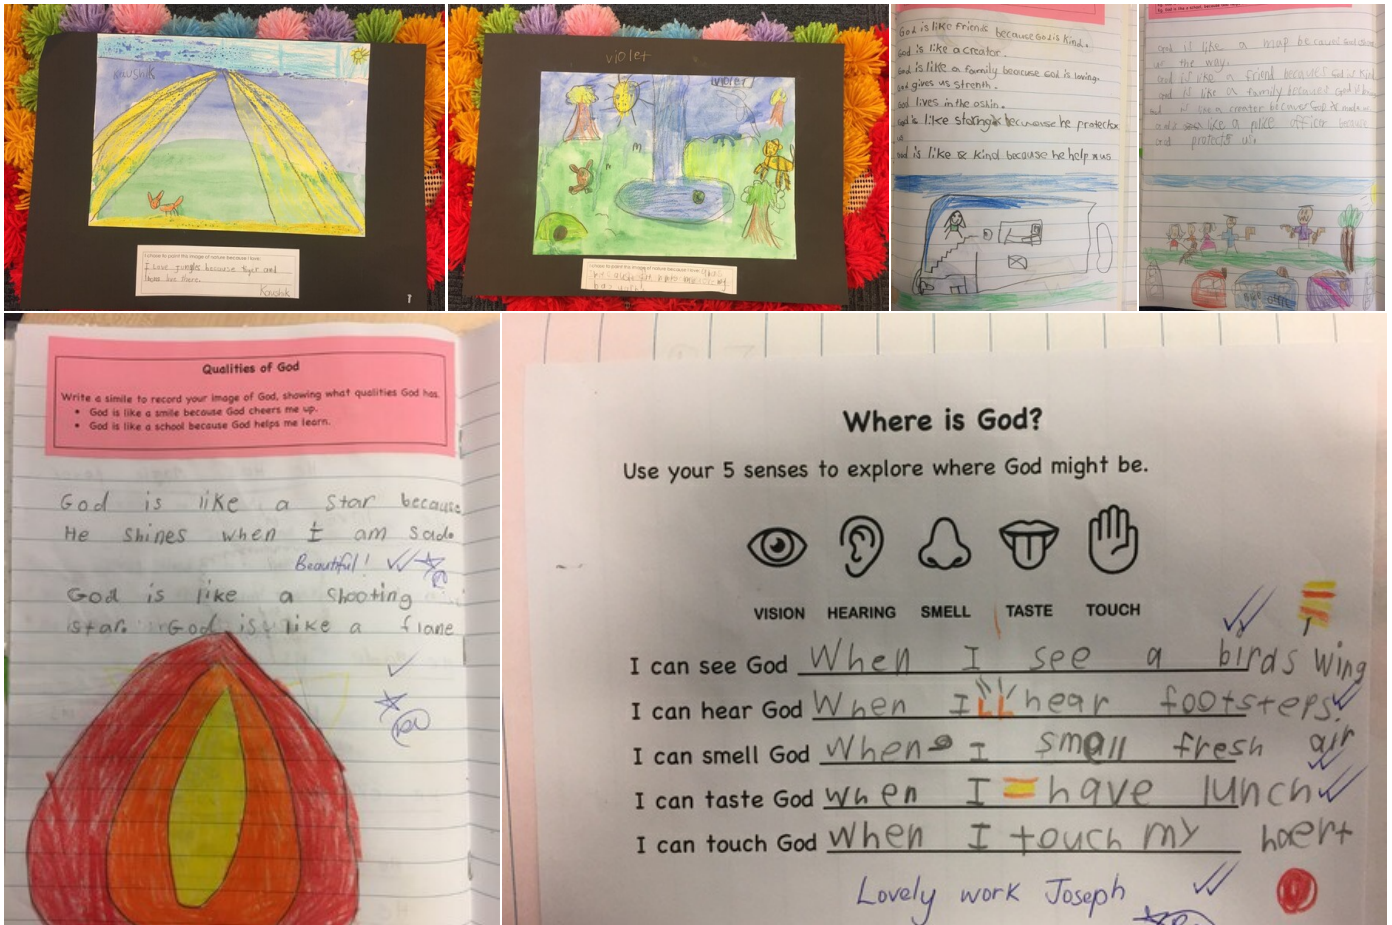 Kaushik
I chose to paint this image of nature because I love:
I Love jungles because tiger and
live there.
Kaushik
violet
violet
I chose to paint this image of nature because I love
God is like Friends because God is kind.
God is like a creator.
God is like a family beacuse God is loving.
God gives us strenth.
God lives in the
God is like because he protector
us
God is like & kind because he help us
God is like a school because
God is like a map because God shows
us the way.
God is like a friend because God is kind
God is like a family because God
God is like a creator because God made
God is like a officer because
God protects us.
Qualities of God
Write a simile to record your image of God, showing what qualities God has.
• God is like a smile because God cheers me up.
• God is like a school because God helps me learn.
God is like a star because
He shines when I am sad.
Beautiful!
God is like a shooting
star. God is like a flame
Where is God?
Use your 5 senses to explore where God might be.
VISION HEARING SMELL TASTE TOUCH
I can see God When I see a birds wing
I can hear God When I hear footsteps.
I can smell God When I small fresh air
I can taste God when I have lunch
I can touch God When I touch my haert
Lovely work Joseph